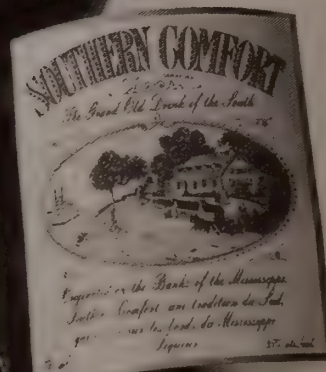 SOUTHERN COMFORT
The Grand Old Drink of the South
on the Banks of the Mississippi
Southern Comfort une tradition du Sud
sur les bords du Mississippi
Liqueur